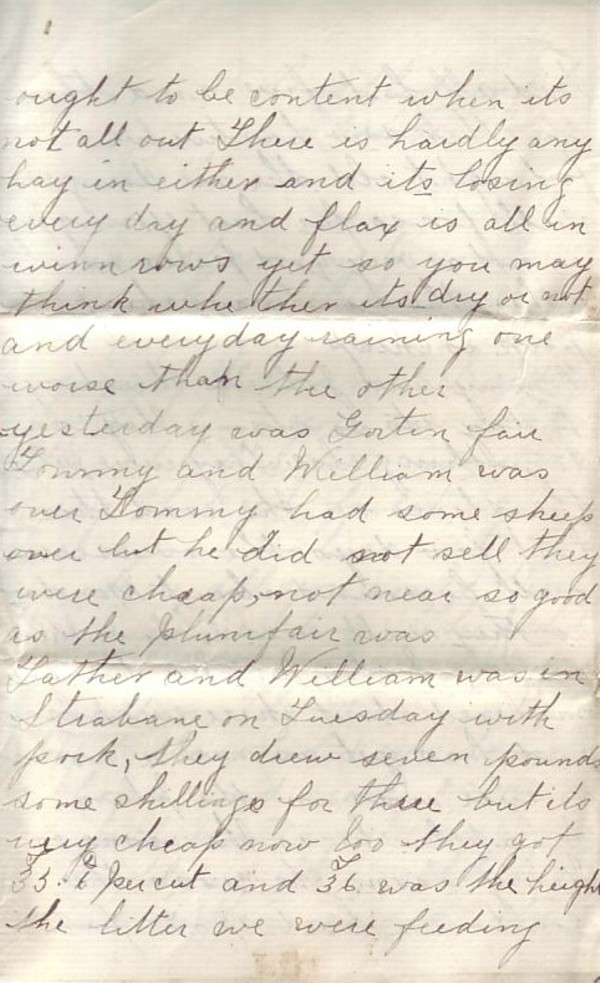 ought to be content when its
not all out There is hardly any
hay in either and its losing
every day and flax is all in
winn rows yet so you may
think whether its dry or not
and everyday raining one
worse than the other
yesterday was Gortin fair
Tommy and William was
over Tommy had some sheep
over but he did not sell they
were cheap, not near so good
as the plumfair was
Father and William was in
Strabane on Tuesday with
pork, they drew seven pounds
some shillings for three but its
very cheap now too they got
33. 6 per cut and 36 was the height
the litter we were feeding